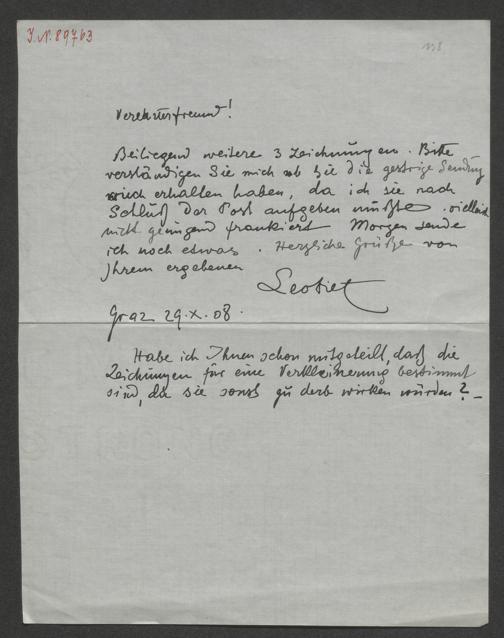 J.N. 89763
138
Verehrtfreund!
Beiliegend weitere 3 Zeichnungen. Bitte
verständigen Sie mich ob Sie die gestrige Sendung
erhalten haben, da ich sie nach
Schluß der Post aufgeben mußte. vielleicht
nicht genügend frankiert. Morgen sende
ich noch etwas. Herzliche Grüße von
Ihrem ergebenen
Graz 29.X.08.
Habe ich Ihnen schon mitgeteilt, daß die
Zeichnungen für eine Verkleinerung bestimmt
sind, da sie sonst zu derb wirken würden? _